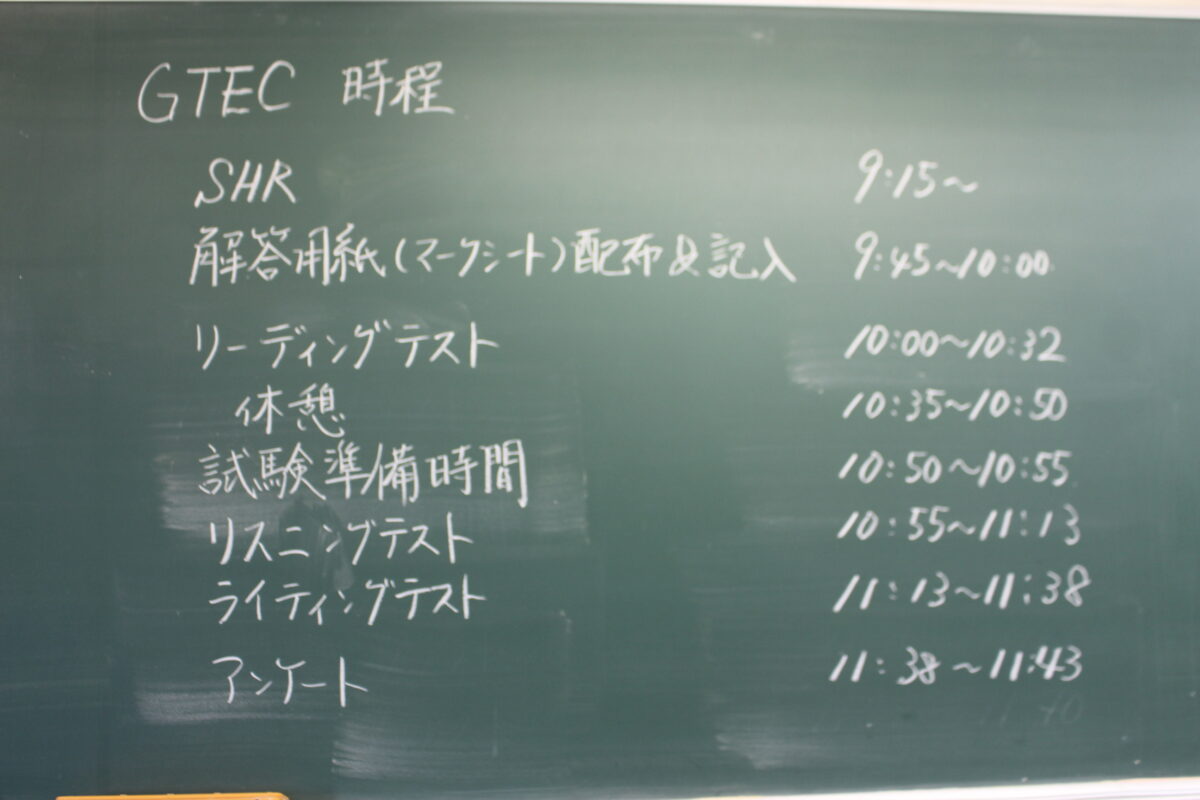 GTEC 時程
SHR 9:15～
解答用紙(マークシート)配布&記入 9:45～10:00
リーディングテスト 10:00～10:32
休憩 10:35～10:50
試験準備時間 10:50～10:55
リスニングテスト 10:55～11:13
ライティングテスト 11:13～11:38
アンケート 11:38～11:43